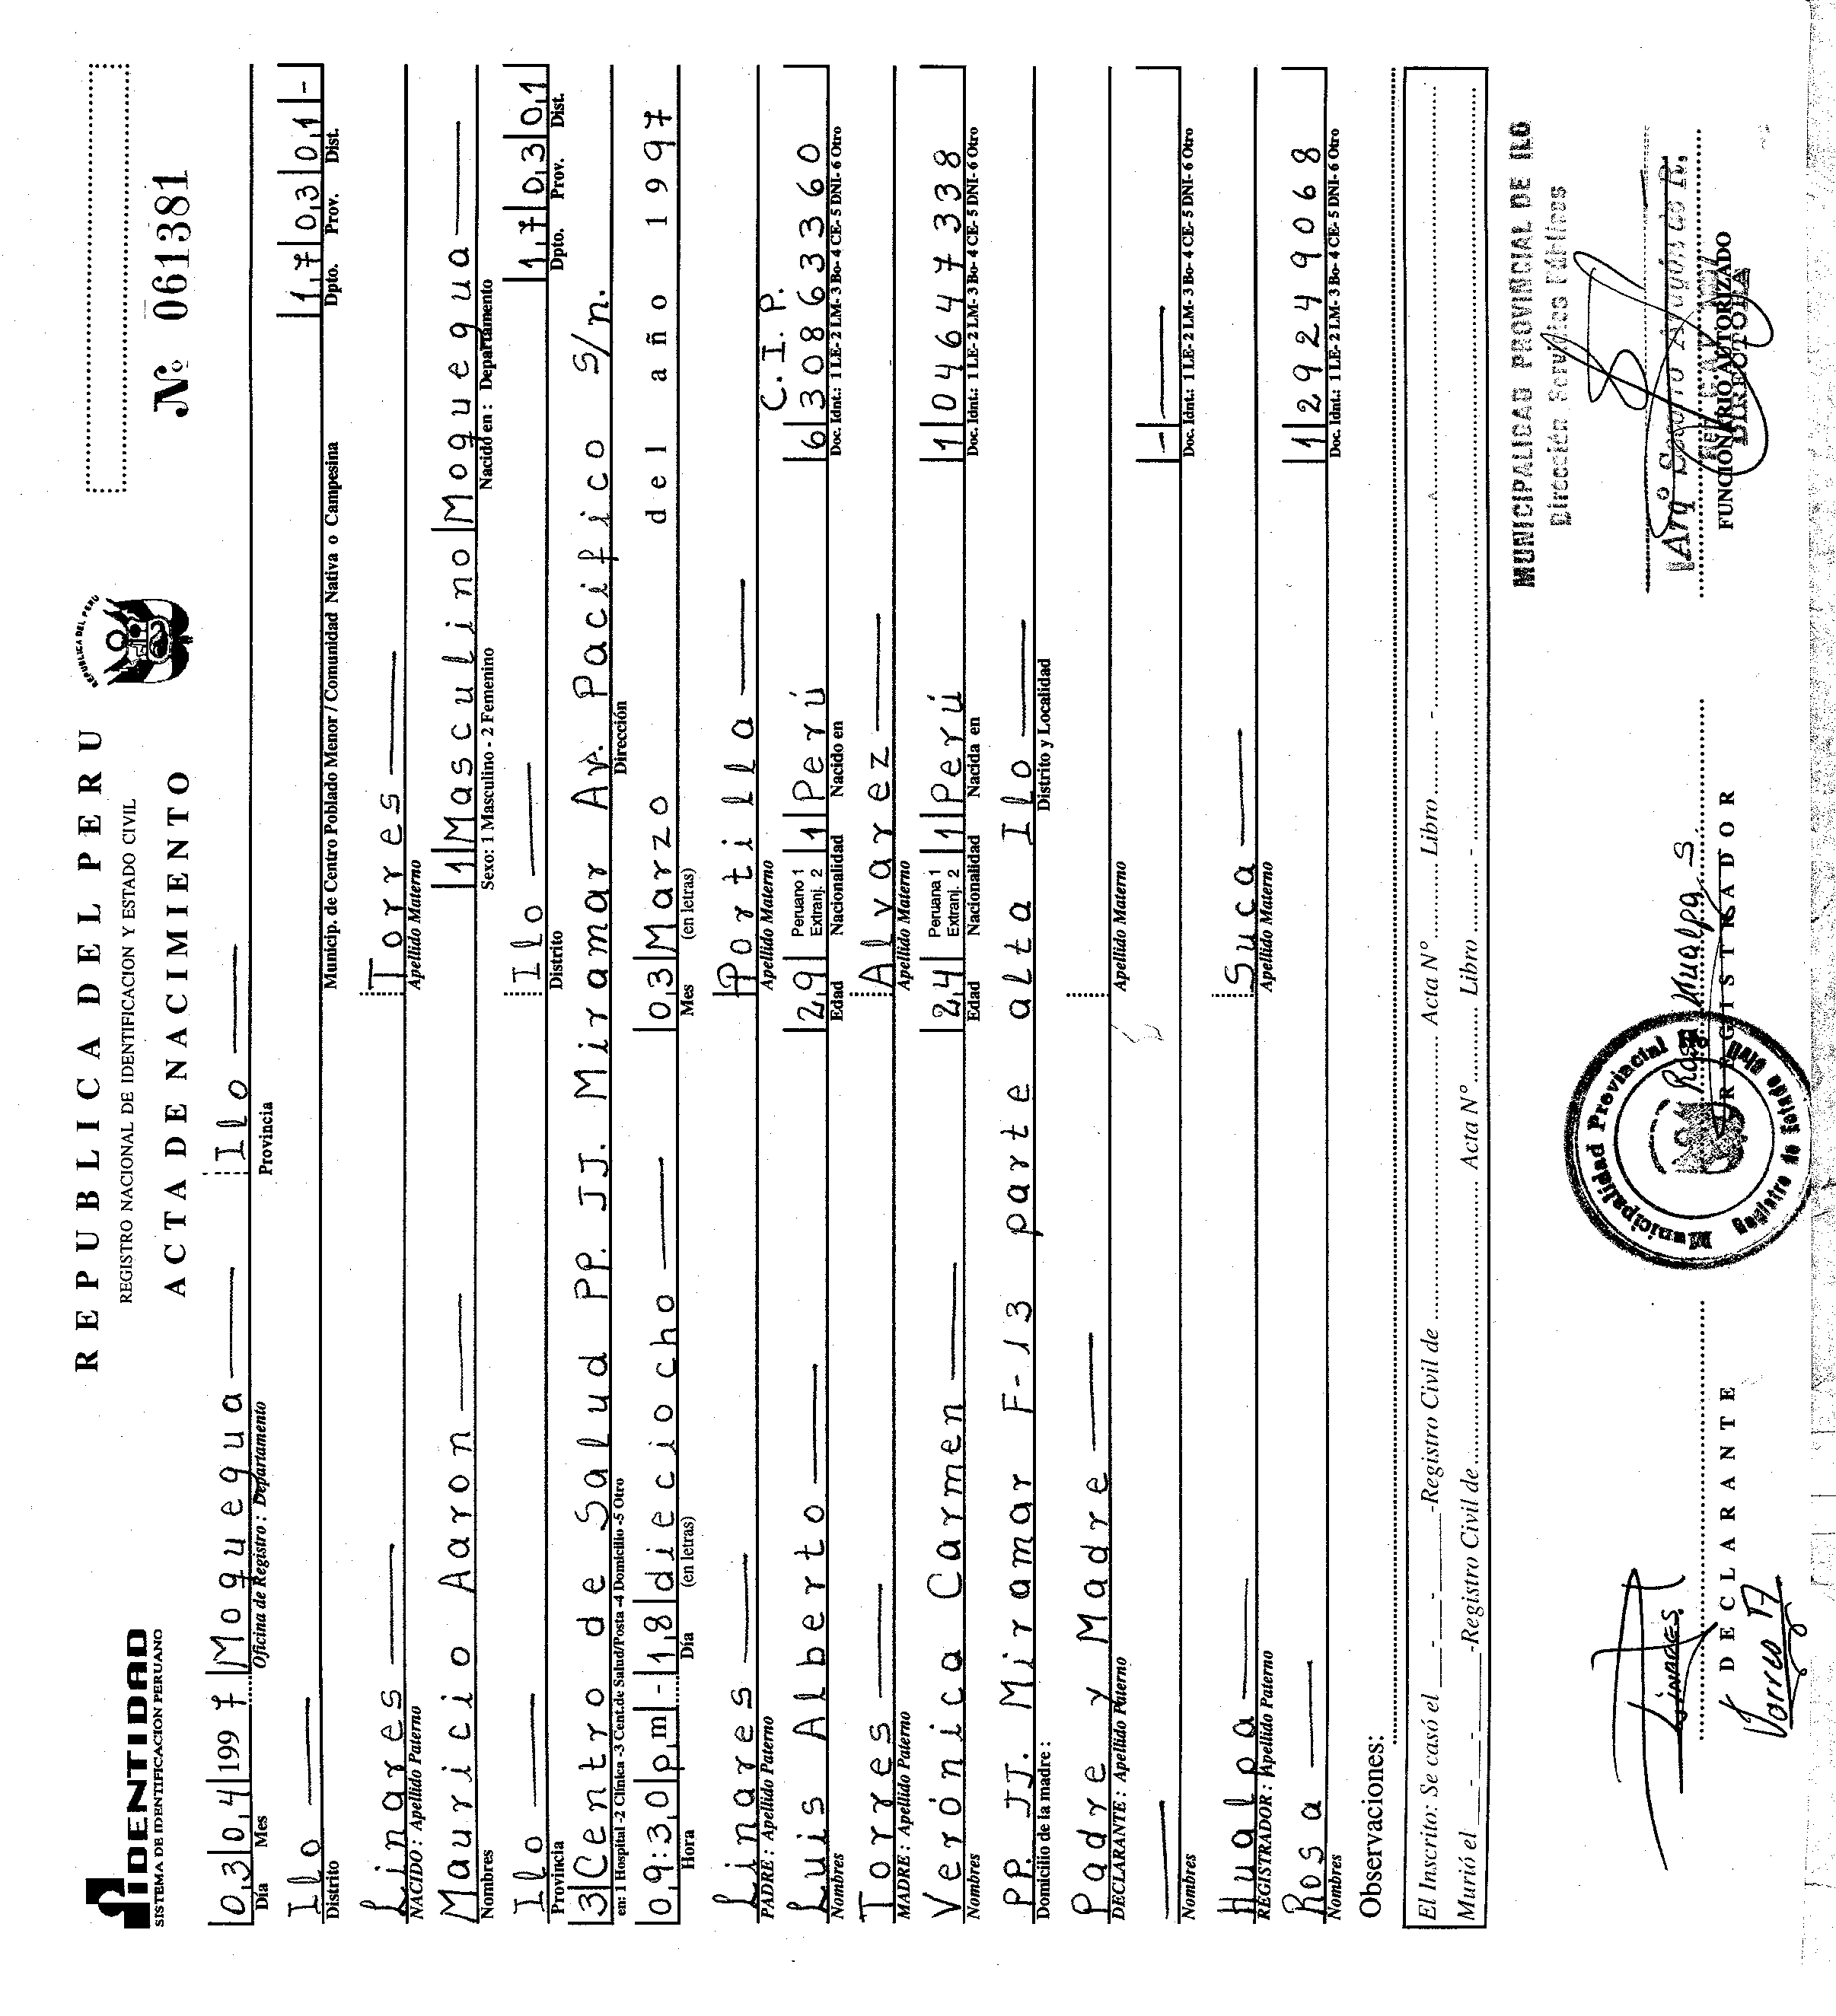 IDENTIDAD
SISTEMA DE IDENTIFICACION PERUANO
REPUBLICA DEL PERU
REPUBLICA DEL PERU
REGISTRO NACIONAL DE IDENTIFICACION Y ESTADO CIVIL
ACTA DE NACIMIENTO
Nº 061381
03 04 1997 Moquegua Ilo
Día Mes Oficina de Registro : Departamento Provincia
Ilo 17 03 01 -
Distrito Municip. de Centro Poblado Menor / Comunidad Nativa o Campesina Dpto. Prov. Dist.
Linares Torres
NACIDO : Apellido Paterno Apellido Materno
Mauricio Aaron 1 Masculino Moquegua
Nombres Sexo: 1 Masculino - 2 Femenino Nacido en : Departamento
Ilo Ilo 17 03 01
Provincia Distrito Dpto. Prov. Dist.
3 Centro de Salud PP. JJ. Miramar Av. Pacifico S/n.
en: 1 Hospital -2 Clínica -3 Cent.de Salud/Posta -4 Domicilio -5 Otro Dirección
09:30 pm - 18 dieciocho 03 Marzo del año 1997
Hora Día (en letras) Mes (en letras)
Linares Portilla C.I.P.
PADRE : Apellido Paterno Apellido Materno
Luis Alberto 29 Peruano 1 Extranj. 2 1 Perú 6 30863360
Nombres Edad Nacionalidad Nacido en Doc. Idnt.: 1 LE- 2 LM- 3 Bo- 4 CE- 5 DNI- 6 Otro
Torres Alvarez
MADRE : Apellido Paterno Apellido Materno
Verónica Carmen 24 Peruana 1 Extranj. 2 1 Perú 1 04647338
Nombres Edad Nacionalidad Nacida en Doc. Idnt.: 1 LE- 2 LM- 3 Bo- 4 CE- 5 DNI- 6 Otro
PP. JJ. Miramar F-13 parte alta Ilo
Domicilio de la madre : Distrito y Localidad
Padre y Madre
DECLARANTE : Apellido Paterno Apellido Materno
- 
Nombres Doc. Idnt.: 1 LE- 2 LM- 3 Bo- 4 CE- 5 DNI- 6 Otro
Hualpa Suca
REGISTRADOR : Apellido Paterno Apellido Materno
Rosa 1 29249068
Nombres Doc. Idnt.: 1 LE- 2 LM- 3 Bo- 4 CE- 5 DNI- 6 Otro
Observaciones:
El Inscrito: Se casó el - - -Registro Civil de Acta Nº Libro -
Murió el - - -Registro Civil de Acta Nº Libro -
MUNICIPALIDAD PROVINCIAL DE ILO
Dirección Servicios Públicos
Linares
DECLARANTE
Municipalidad Provincial Ilo
Registro de Estado Civil
Rosa Hualpa S.
REGISTRADOR
Arqº
FUNCIONARIO AUTORIZADO
DIRECTORA